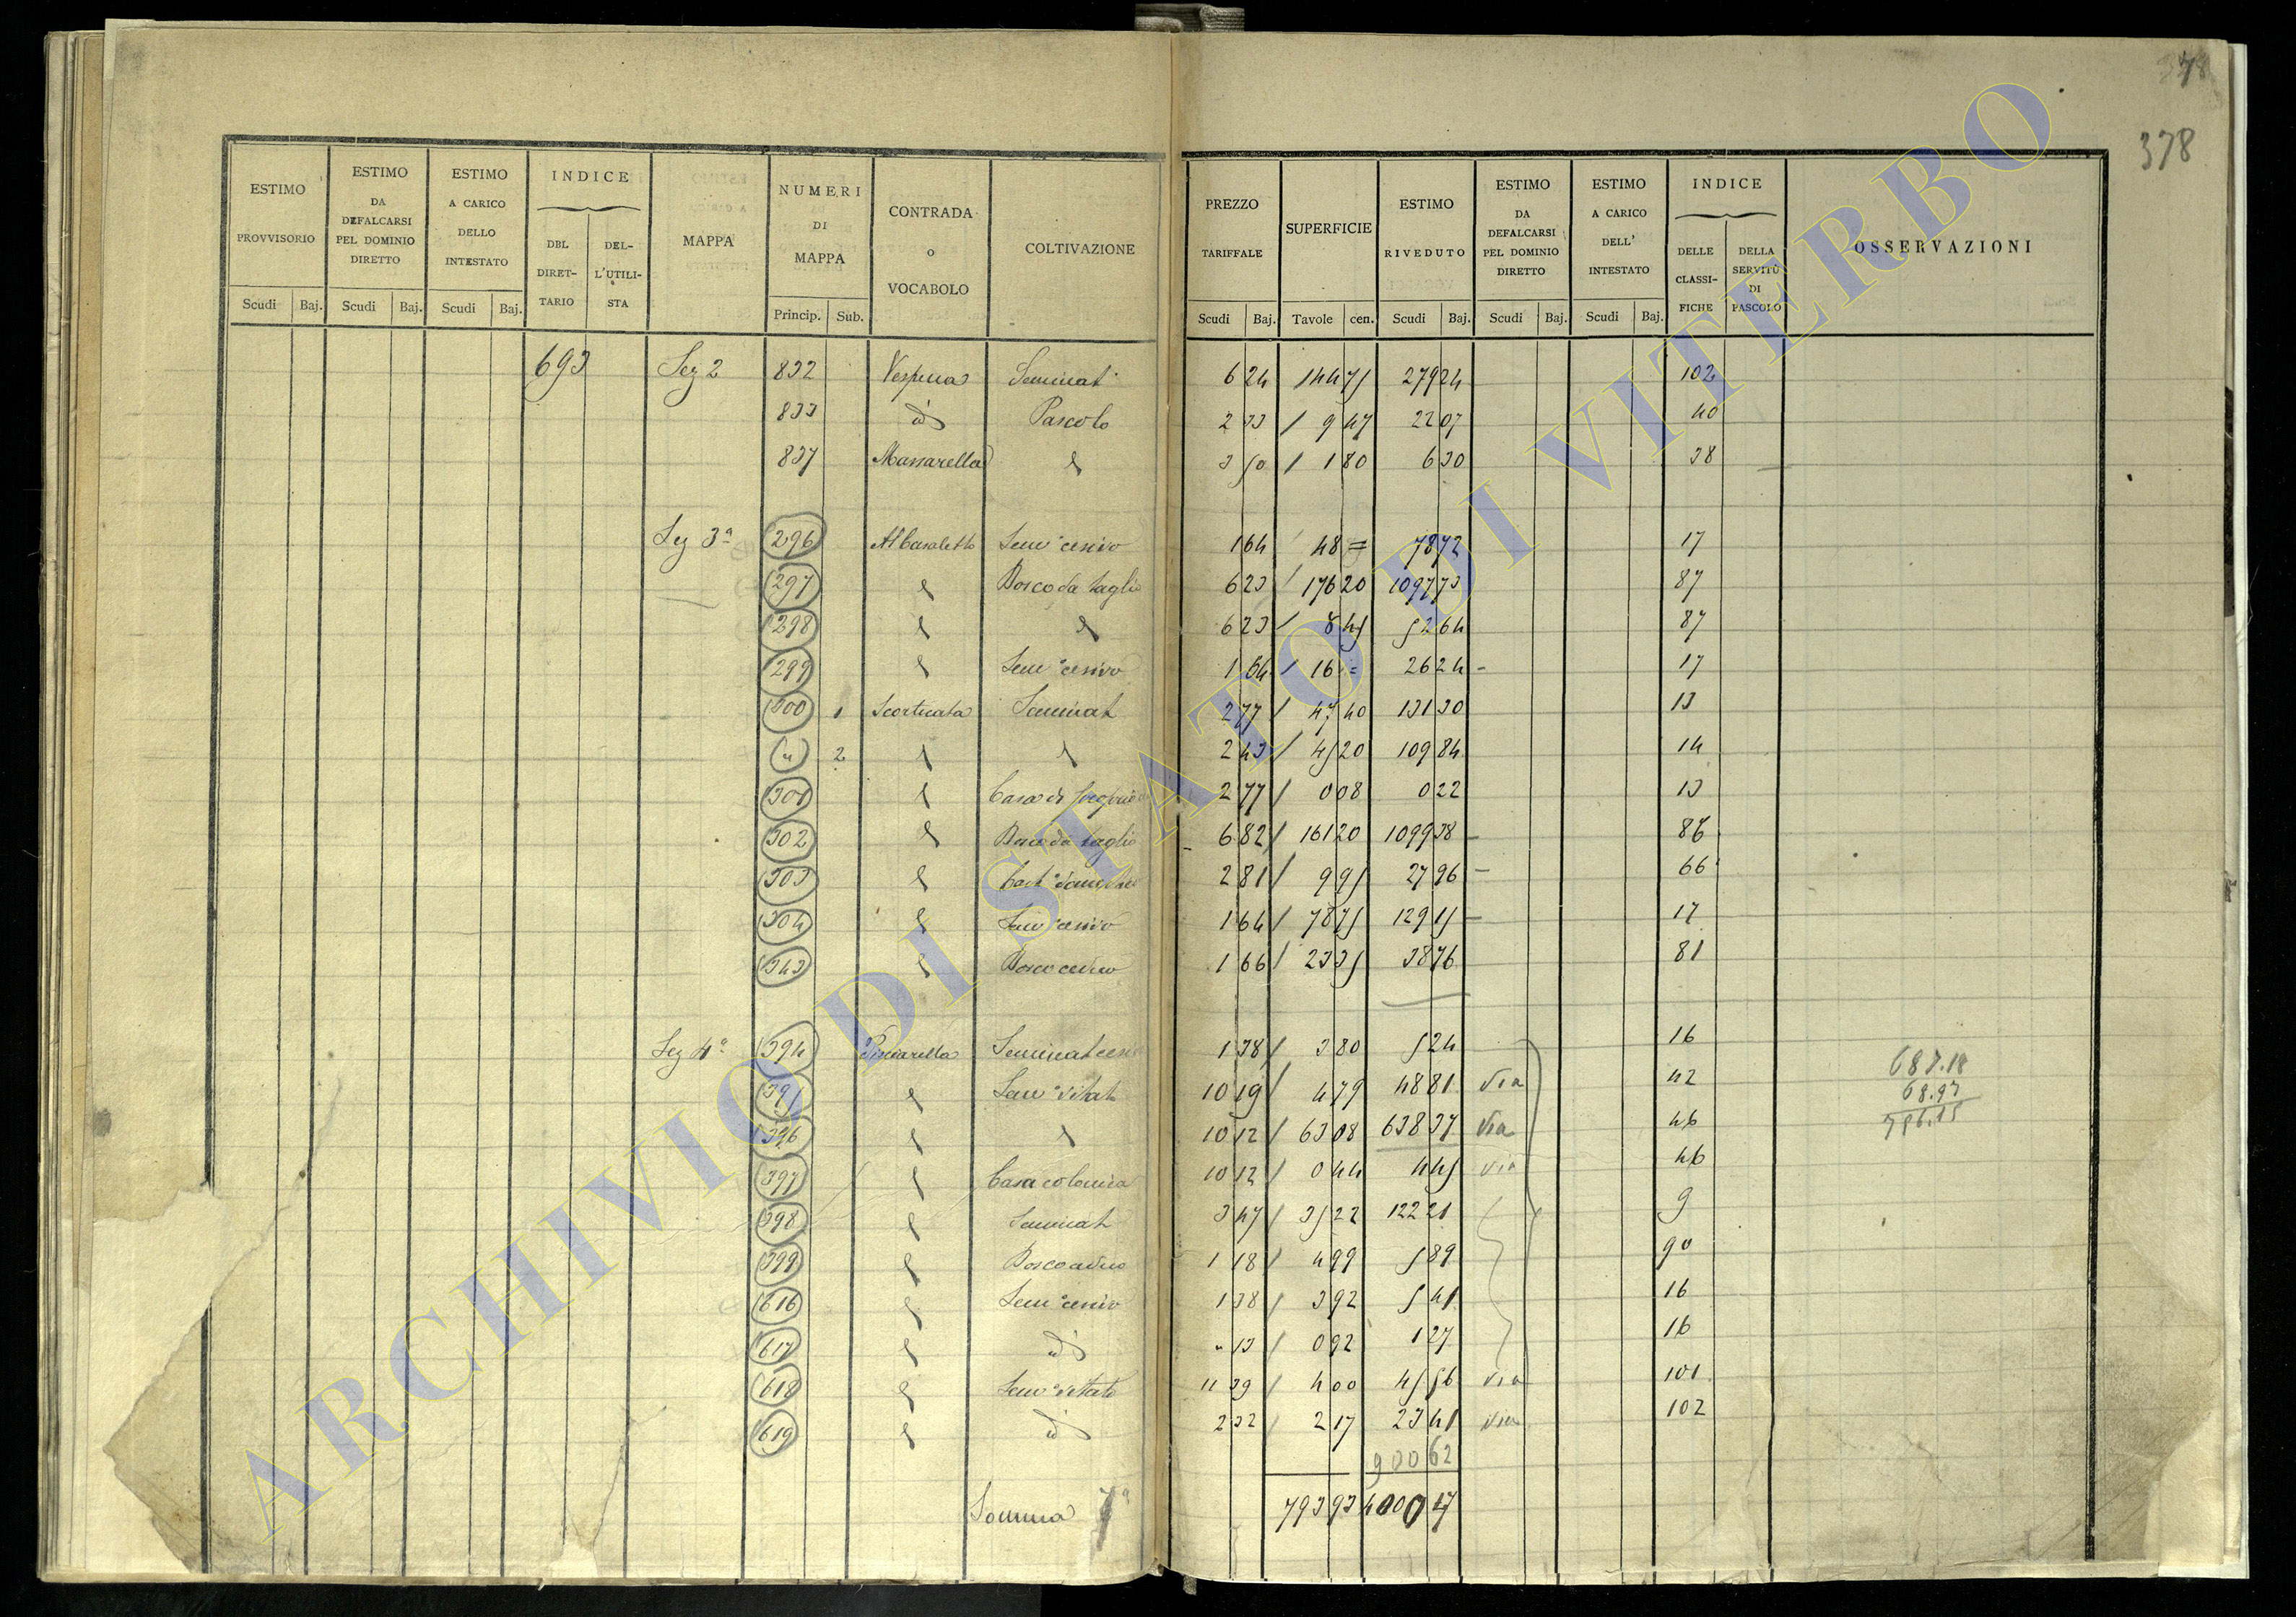 378
ESTIMO PROVVISORIO Scudi Baj. ESTIMO DA DEFALCARSI PEL DOMINIO DIRETTO Scudi Baj. ESTIMO A CARICO DELLO INTESTATO Scudi Baj. INDICE DEL DIRETTARIO DELL'UTILISTA MAPPA NUMERI DI MAPPA Princip. Sub. CONTRADA o VOCABOLO COLTIVAZIONE PREZZO TARIFFALE Scudi Baj. SUPERFICIE Tavole cen. ESTIMO RIVEDUTO Scudi Baj. ESTIMO DA DEFALCARSI PEL DOMINIO DIRETTO Scudi Baj. ESTIMO A CARICO DELL' INTESTATO Scudi Baj. INDICE DELLE CLASSIFICHE DELLA SERVITÙ DI PASCOLO OSSERVAZIONI
693 Sez 2 832 Seminat 6 24 144 75 279 24 102
833 id Pascolo 2 33 9 47 22 07 40
837 Massarella 3 50 1 80 6 30 38
Sez 3ª 296 Sem.º cesivo 1 64 48 = 78 72 17
297 Bosco da taglio 6 23 176 20 1097 73 87
298 6 23 8 45 52 64 87
299 Sem.º cesivo 1 64 16 = 26 24 17
300 1 Scorticata Seminat 2 77 47 40 131 30 13
" 2 2 43 45 20 109 84 14
301 Casa di 2 77 0 08 0 22 13
302 Bosco da taglio 6 82 161 20 1099 38 86
303 2 81 9 95 27 96 66
304 Sem.º cesivo 1 64 78 75 129 15 17
343 Bosco ceduo 1 66 23 35 38 76 81
Sez 4ª 394 Seminat cesi 1 38 3 80 5 24 16
395 Sem.º vitat 10 19 4 79 48 81 Via 42
396 10 12 63 08 638 37 Via 46
397 Casa colonica 10 12 0 44 4 45 Via 46
398 Seminat 3 47 35 22 122 21 9
399 Bosco ceduo 1 18 4 99 5 89 90
616 Sem.º cesivo 1 38 3 92 5 41 16
617 id " 13 0 92 1 27 16
618 Sem.º vitato 11 39 4 00 45 56 Via 101
619 id 2 32 2 17 23 41 Via 102
687.18
68.97
756.15
900 62
Somma 7ª 793 93 4000 47
ARCHIVIO DI STATO DI VITERBO